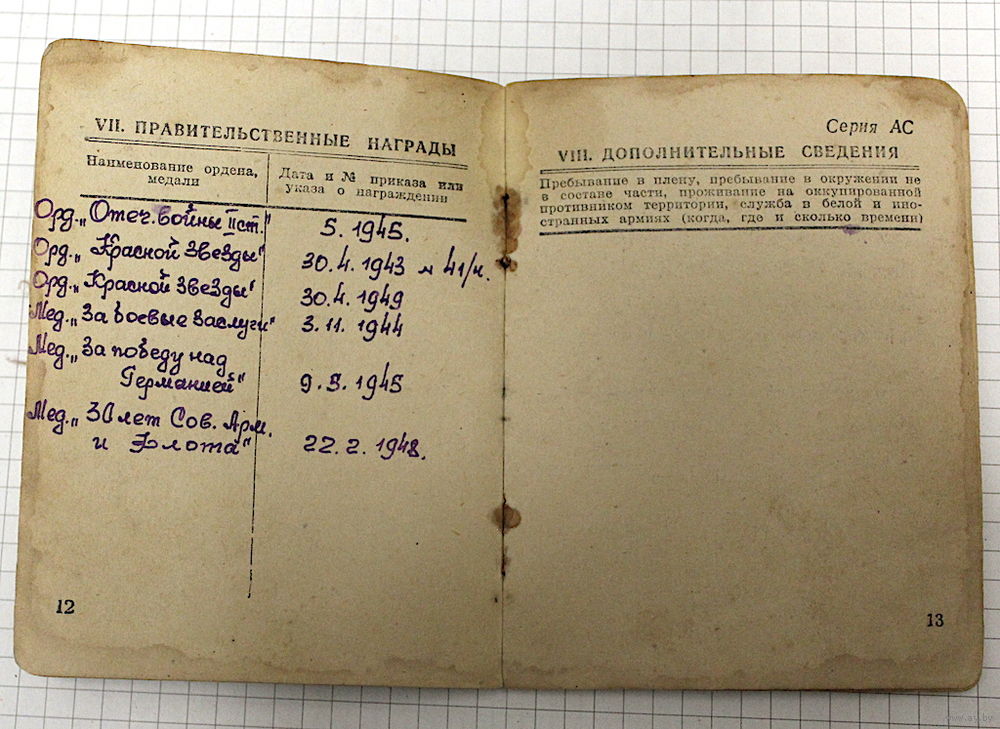 VII. ПРАВИТЕЛЬСТВЕННЫЕ НАГРАДЫ
Наименование ордена,
медали
Дата и № приказа или
указа о награждении
Орд. „Отеч. войны II ст."
5. 1945.
Орд. „Красной Звезды"
30.4. 1943 № 41/н.
Орд. „Красной Звезды"
30.4. 1949
Мед. „За боевые заслуги"
3.11. 1944
Мед. „За победу над
Германией"
9.5. 1945
Мед. „30 лет Сов. Арм.
и Флота"
22.2. 1948.
12
Серия АС
VIII. ДОПОЛНИТЕЛЬНЫЕ СВЕДЕНИЯ
Пребывание в плену, пребывание в окружении не
в составе части, проживание на оккупированной
противником территории, служба в белой и ино-
странных армиях (когда, где и сколько времени)
13
www.ay.by